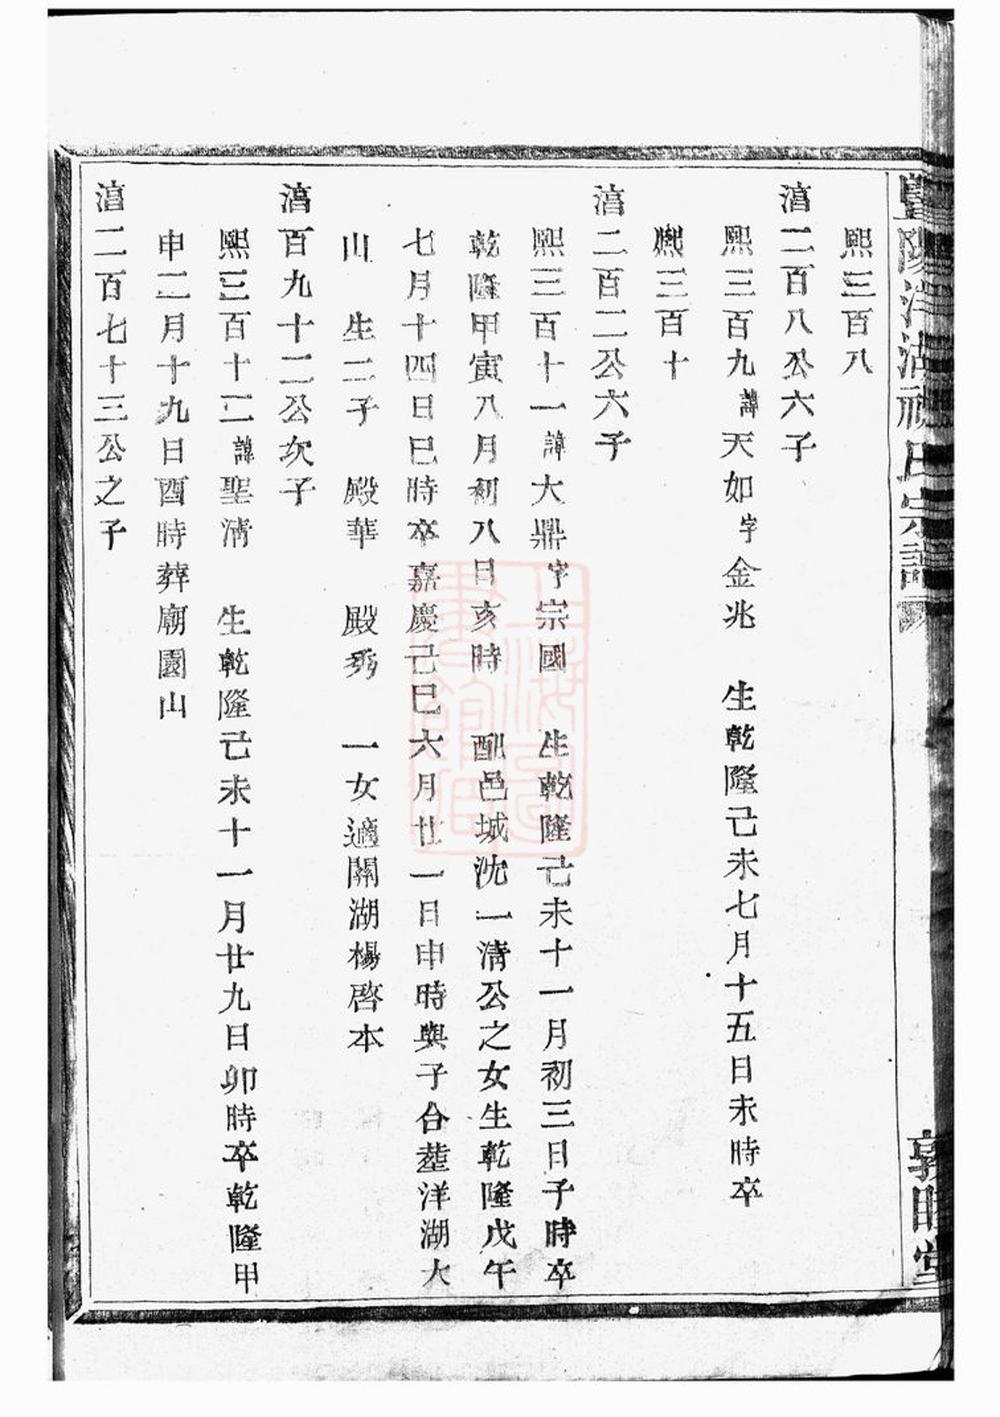 暨陽洋湖祝氏宗譜
敦睦堂
熙三百八
湻二百八公六子
熙三百九諱天如字金兆 生乾隆己未七月十五日未時卒
熙三百十
湻二百二公六子
熙三百十一諱大鼎字宗國 生乾隆己未十一月初三日子時卒
乾隆甲寅八月初八日亥時 配邑城沈一清公之女生乾隆戊午
七月十四日巳時卒嘉慶己巳六月廿一日申時與子合塟洋湖大
山 生二子 殿華 殿秀 一女適闗湖楊啓本
湻百九十二公次子
熙三百十二諱聖清 生乾隆己未十一月廿九日卯時卒乾隆甲
申二月十九日酉時葬廟園山
湻二百七十三公之子
上海圖書館藏